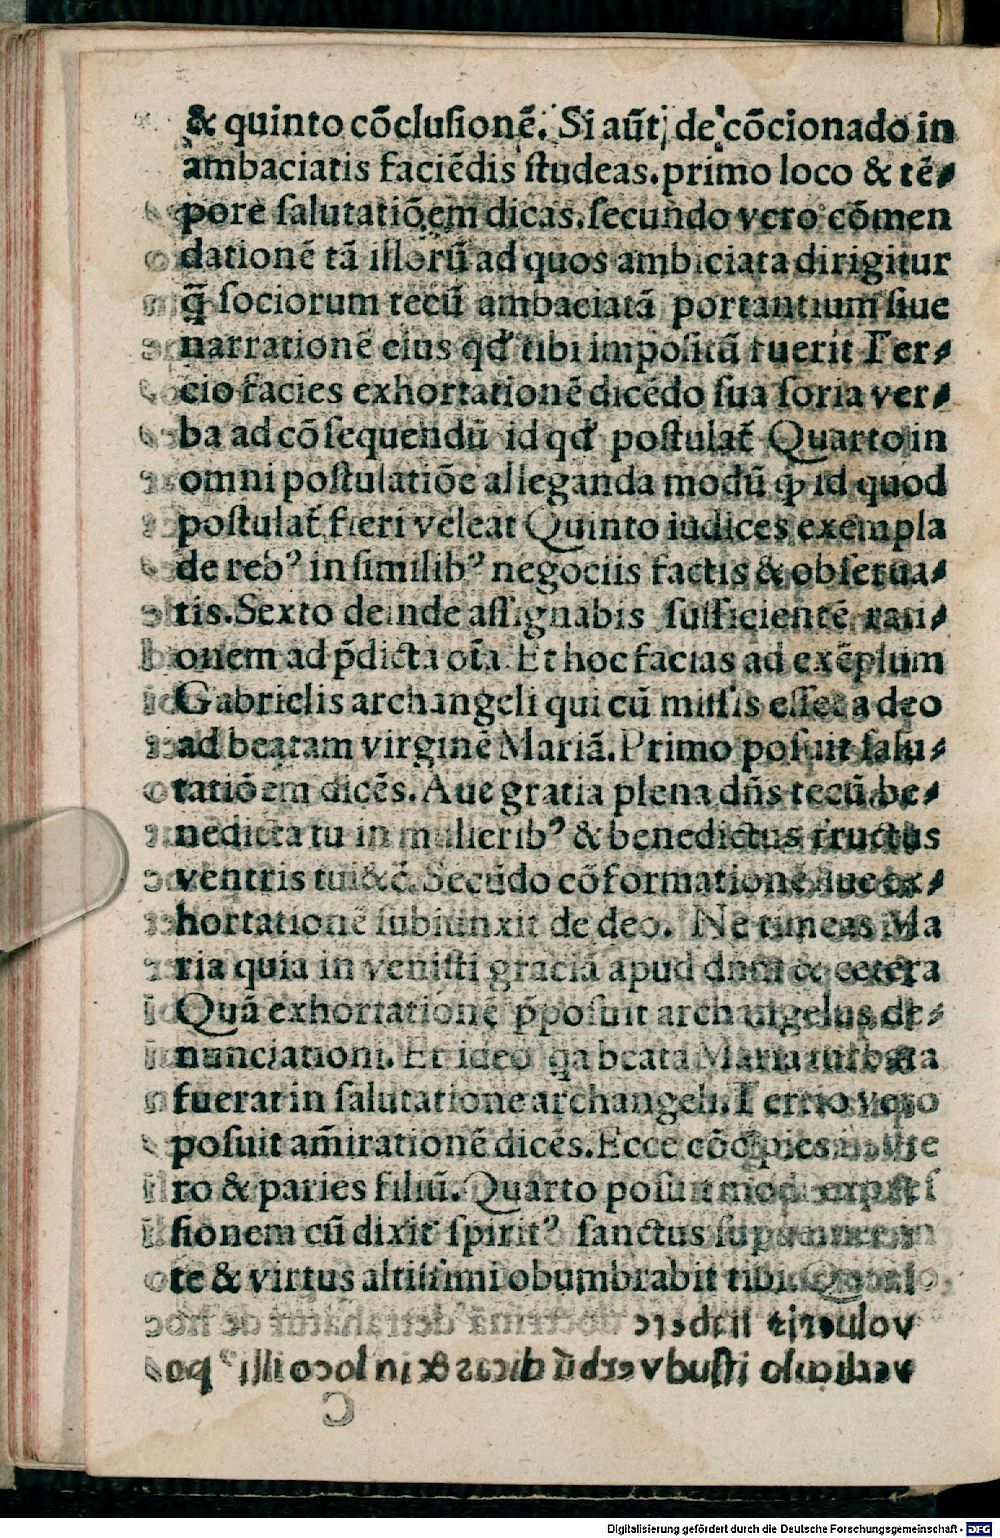 & quinto cõclusionẽ. Si aũt de cõcionado in
ambaciatis faciẽdis ſtudeas. primo loco & tẽ⸗
pore ſalutatiõem dicas. ſecundo vero cõmen
dationẽ tã illorũ ad quos ambiciata dirigitur
q̃ ſociorum tecũ ambaciatã portantium ſiue
narrationẽ eius qđ tibi impoſitũ fuerit Ter⸗
cio facies exhortationẽ dicẽdo ſua ſoria ver⸗
ba ad cõſequendũ id qđ poſtulat̃ Quarto in
omni poſtulatiõe alleganda modũ ꝙ id quod
poſtulat̃ fieri veleat Quinto iudices exempla
de rebꝰ in ſimilibꝰ negociis factis & obſerua⸗
tis. Sexto deinde aſſignabis ſufficientẽ rati⸗
onem ad p̃dicta oĩa. Et hoc facias ad exẽplum
Gabrielis archangeli qui cũ miſſis eſſet a deo
ad beatam virginẽ Mariã. Primo poſuit ſalu⸗
tatiõem dicẽs. Aue gratia plena dñs tecũ be⸗
nedicta tu in mulieribꝰ & benedictus fructus
ventris tui &c̃. Secũdo cõformationẽ ſiue ex⸗
hortationẽ ſubiunxit de deo. Ne timeas Ma
ria quia in veniſti graciã apud dñm & cetera
Quã exhortationẽ p̃poſuit archangelus de⸗
nunciationi. Et ideo q̃a beata Maria turbata
fuerat in ſalutatione archangeli. Tertio vero
poſuit am̃irationẽ dicẽs. Ecce cõcipies in vte
ro & paries filiũ. Quarto poſuit
ſionem cũ dixit ſpiritꝰ ſanctus
te & virtus altiſſimi obumbrabit tibi.
C
Digitalisierung gefördert durch die Deutsche Forschungsgemeinschaft - DFG